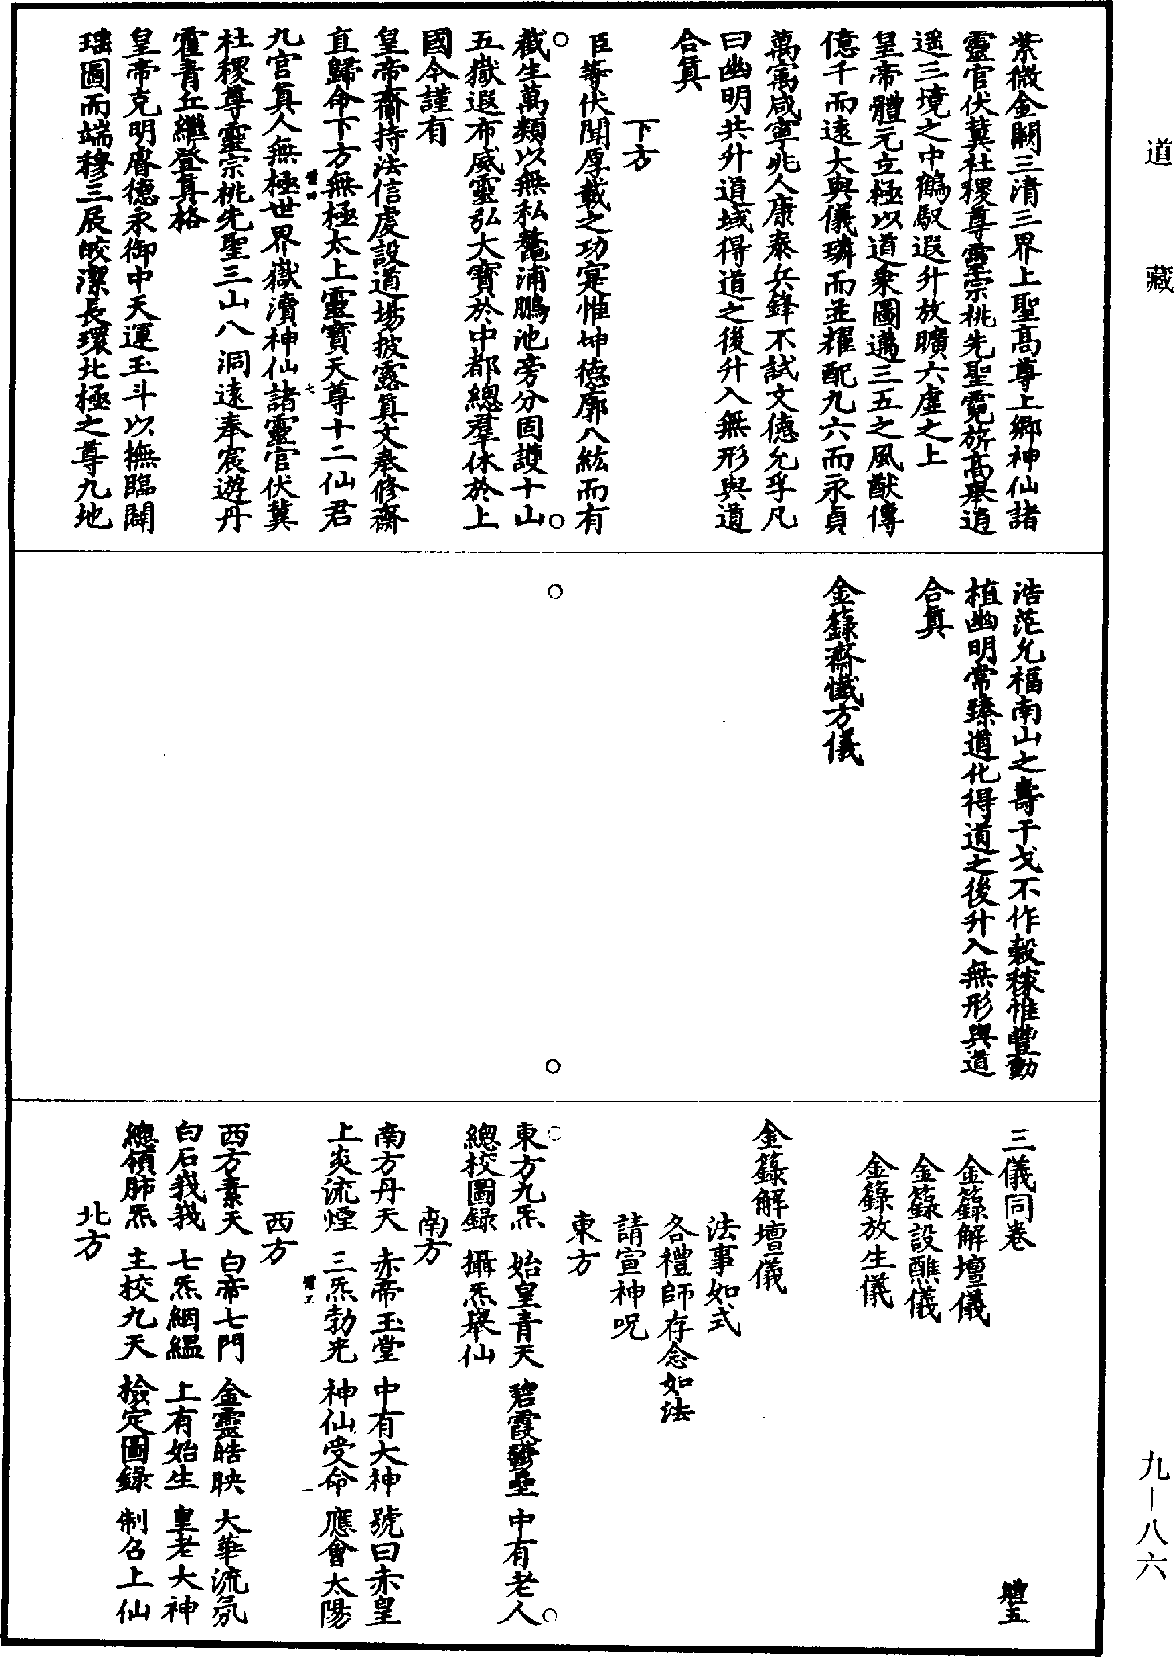 道藏
紫微金闕三清三界上聖高尊上鄉神仙諸
靈官伏冀社稷尊靈宗桃先聖霓旂高舉逍
遥三境之中鶴馭遐升放曠六虛之上
皇帝體元立極以道乘圖邁三五之風猷傳
億千而遠大與儀璘而並耀配九六而永貞
萬寓咸寧兆人康泰兵鋒不試文德允孚凡
曰幽明共升道域得道之後升入無形與道
合真
下方
臣等伏聞厚載之功寔惟坤德廓八紘而有
截生萬類以無私鼇浦鵬池旁分固護十山
五嶽遐布威靈弘大寶於中都總羣休於上
國今謹有
皇帝齎持法信處設道場披露真文奉修齋
直歸命下方無極太上靈寶天尊十二仙君
九宮真人無極世界嶽瀆神仙諸靈官伏冀
社稷尊靈宗桃先聖三山八洞遠奉宸遊丹
霍青丘繼登真格
皇帝克明睿德永御中天運玉斗以撫臨闡
瑶圖而端穆三辰皎潔長環北極之尊九地
浩茫允福南山之壽干戈不作穀稼惟豐動
植幽明常臻道化得道之後升入無形與道
合真
金籙齋懺方儀
三儀同卷 體五
金籙解壇儀
金籙設醮儀
金籙放生儀
金籙解壇儀
法事如式
各禮師存念如法
請宣神呪
東方
東方九炁 始皇青天 碧霞鬱壘 中有老人
總校圖錄 攝炁舉仙
南方
南方丹天 赤帝玉堂 中有大神 號曰赤皇
上炎流煙 三炁勃光 神仙受命 應會太陽
西方
西方素天 白帝七門 金靈皓映 大華流氛
白石我我 七炁網緼 上有始生 皇老大神
總領肺炁 主校九天 檢定圖錄 制召上仙
北方
九－八六